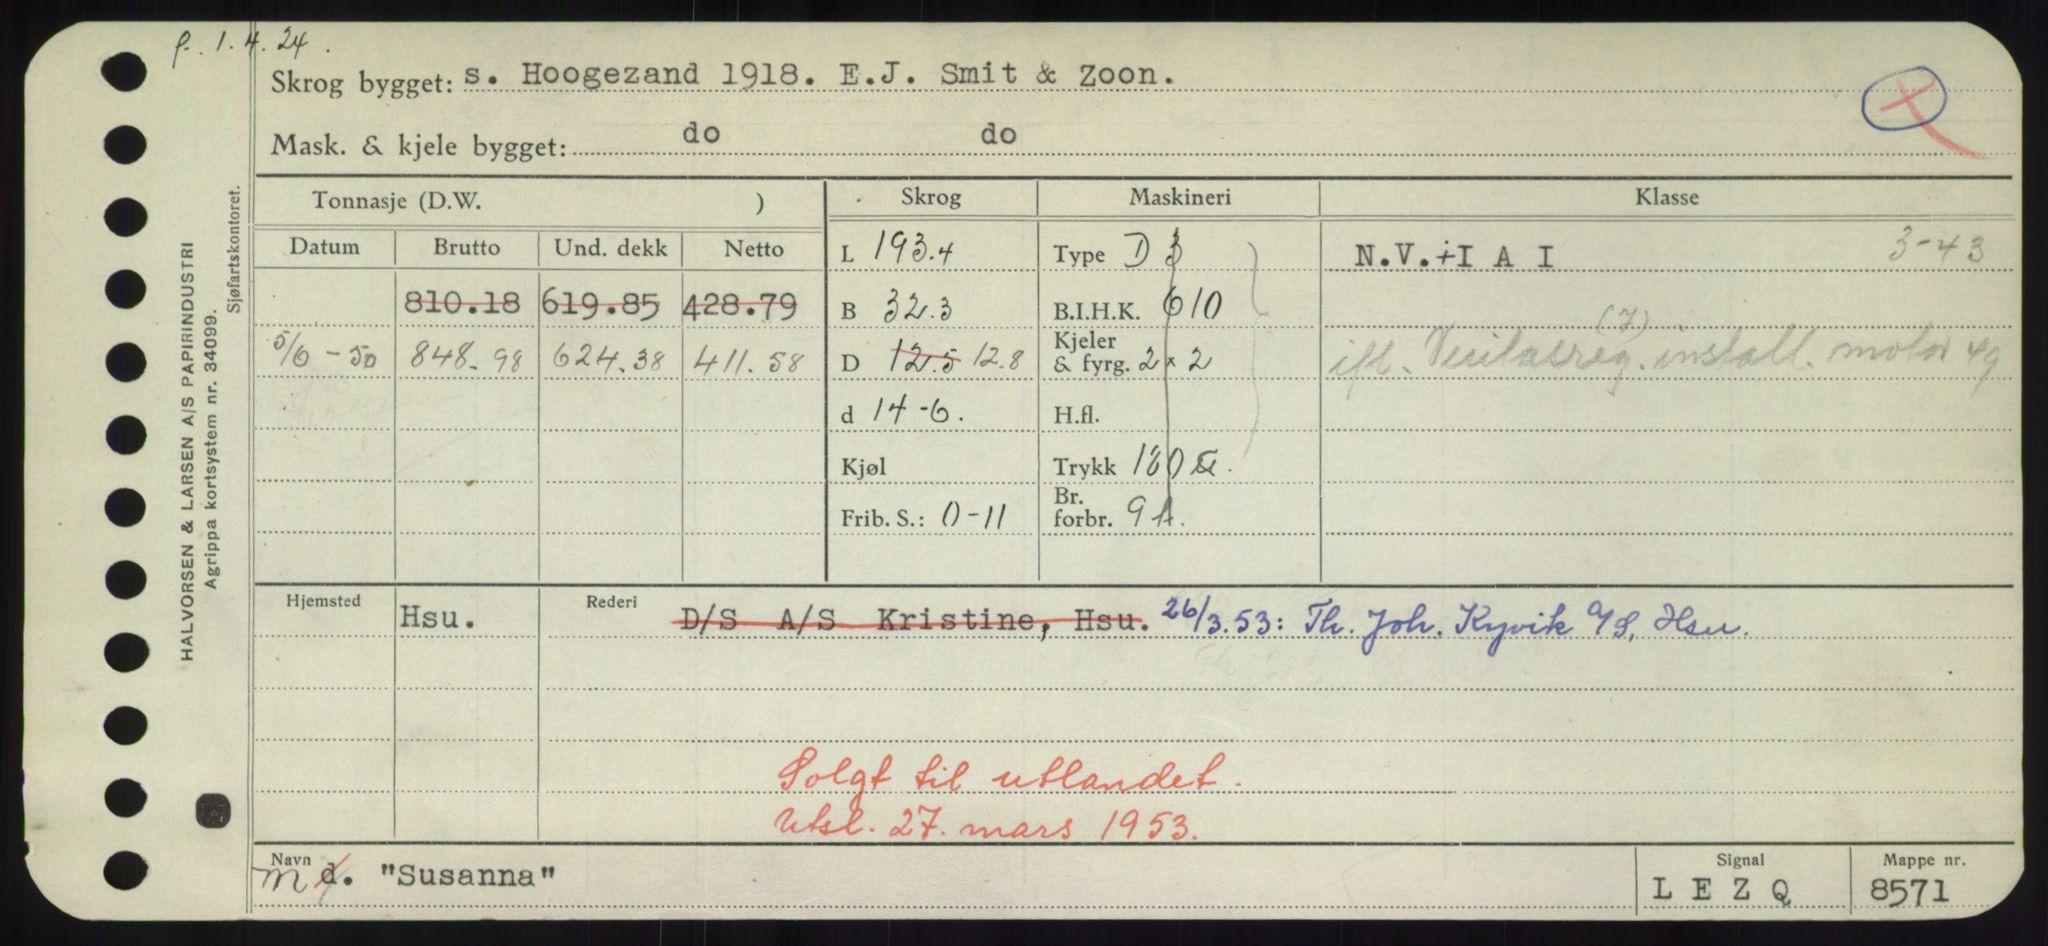 f. 1.4.24.
Skrog bygget: s. Hoogezand 1918. E.J. Smit & Zoon.
Mask. & kjele bygget: do do
HALVORSEN & LARSEN A/S PAPIRINDUSTRI
Agrippa kortsystem nr. 34099.
Sjøfartskontoret.
Tonnasje (D.W. ) Skrog Maskineri Klasse
Datum Brutto Und. dekk Netto L 193.4 Type D 3 N.V.+I A I 3-43
810.18 619.85 428.79 B 32.3 B.I.H.K. 610
5/6-50 848.98 624.38 411.58 D 12.5 12.8 Kjeler & fyrg. 2 x 2 ifl. Veritasreg. (7) install. motor 49
d 14-6. H.fl.
Kjøl Trykk 180
Frib. S.: 0-11 Br. forbr. 9
Hjemsted Hsu. Rederi D/S A/S Kristine, Hsu. 26/3.53: Th. Joh. Kyvik A/S, Hsu.
Solgt til utlandet.
Utsl. 27. mars 1953.
Navn m d. "Susanna" Signal LEZQ Mappe nr. 8571